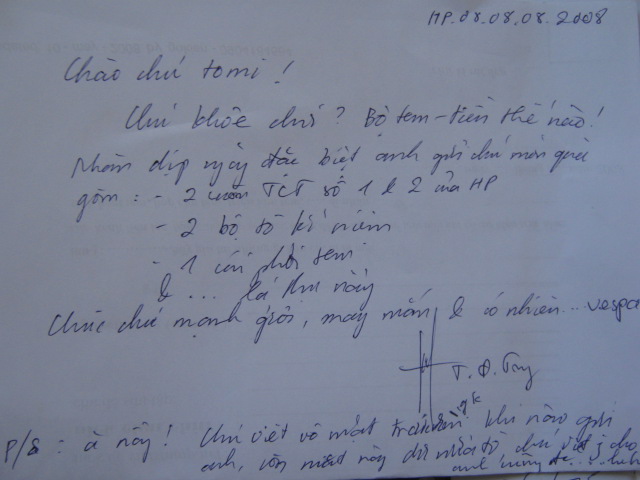 HP. 08.08.08.2008
Chào chú tomi !
Chú khỏe chứ ? Bộ tem - tiền thế nào !
Nhân dịp ngày đặc biệt anh gửi chú món quà
gồm : - 2 cuốn TCT số 1 & 2 của HP
- 2 bộ tờ kỉ niệm
- 1 cái phơi tem
& ... lá thư này
Chúc chú mạnh giỏi, may mắn & có nhiên ... vespa
T. Đ.
P/S : à này ! Chú viết vô mặt khi nào gửi
anh, còn mặt này chú viết cho
anh